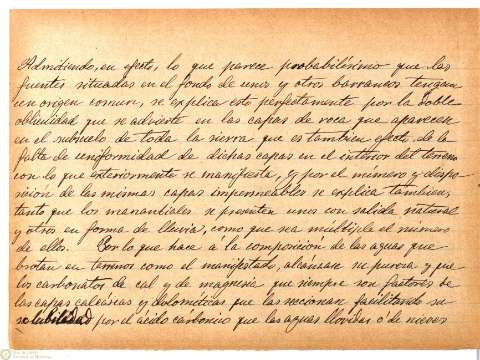 Admitiendo, en efecto, lo que parece probabilísimo que las
fuentes situadas en el fondo de unos y otros barrancos tengan
un origen comun, se explica esto perfectamente por la doble
oblicuidad que se advierte en las capas de roca que aparecen
en el subsuelo de toda la sierra, que es tambien efecto de la
falta de uniformidad de dichas capas en el interior del terreno
con lo que exteriormente se manifiesta, y por el número y dispo-
sicion de las mismas capas impermeables se explica tambien,
tanto que los manantiales se presenten unos con salida natural
y otros en forma de lluvia, como que sea multiple el numero
de ellos. Por lo que hace á la composicion de las aguas que
brotan en terrenos como el manifestado, alcánzase su pureza y que
los carbonatos de cal y de magnesia que siempre son factores de
las capas calcáseas y dolomíticas que las seccionan facilitando su
solubilidad por el ácido carbónico que las aguas llovidas ó de nieves